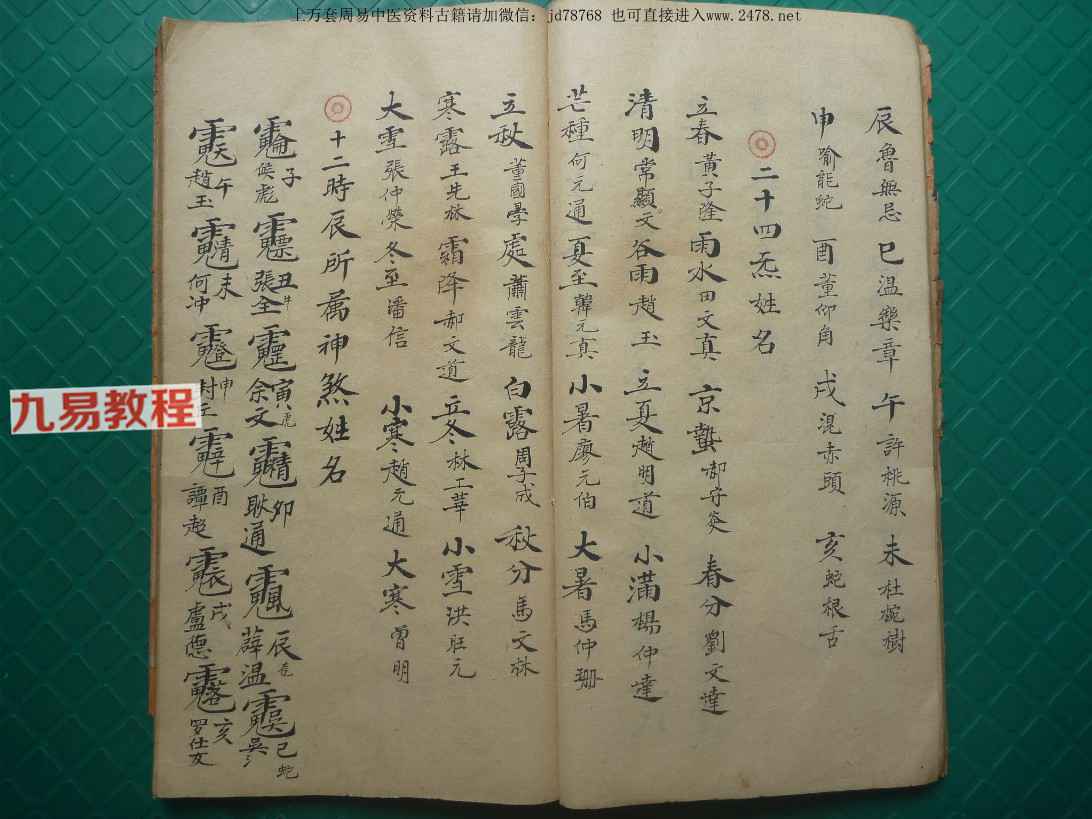 上万套周易中医资料古籍请加微信:jd78768 也可直接进入www.2478.net
辰 魯無忌 巳 温樂章 午 許桃源 未 杜桅樹
申 喻龍蛇 酉 董仰角 戌 混赤頭 亥 蛇根舌
二十四炁姓名
立春 黃子隆 雨水 田文真 京蟄 鄔守炎 春分 劉文達
清明 常顯文 谷雨 趙玉 立夏 趙明道 小滿 楊仲達
芒種 何元通 夏至 韓元真 小暑 廖元伯 大暑 馬仲珊
立秋 董國學 處 蕭雲龍 白露 周子成 秋分 馬文林
寒露 王先林 霜降 郝文道 立冬 林工華 小雪 洪旺元
大雪 張仲榮 冬至 潘信 小寒 趙元通 大寒 曾明
十二時辰所属神煞姓名
子 侯彪 丑 牛 張全 寅 虎 余文 卯 耿通 辰 薛温 巳 蛇 吳
午 趙玉 未 何冲 申 封 酉 譚起 戌 盧德 亥 罗仕友
九易教程